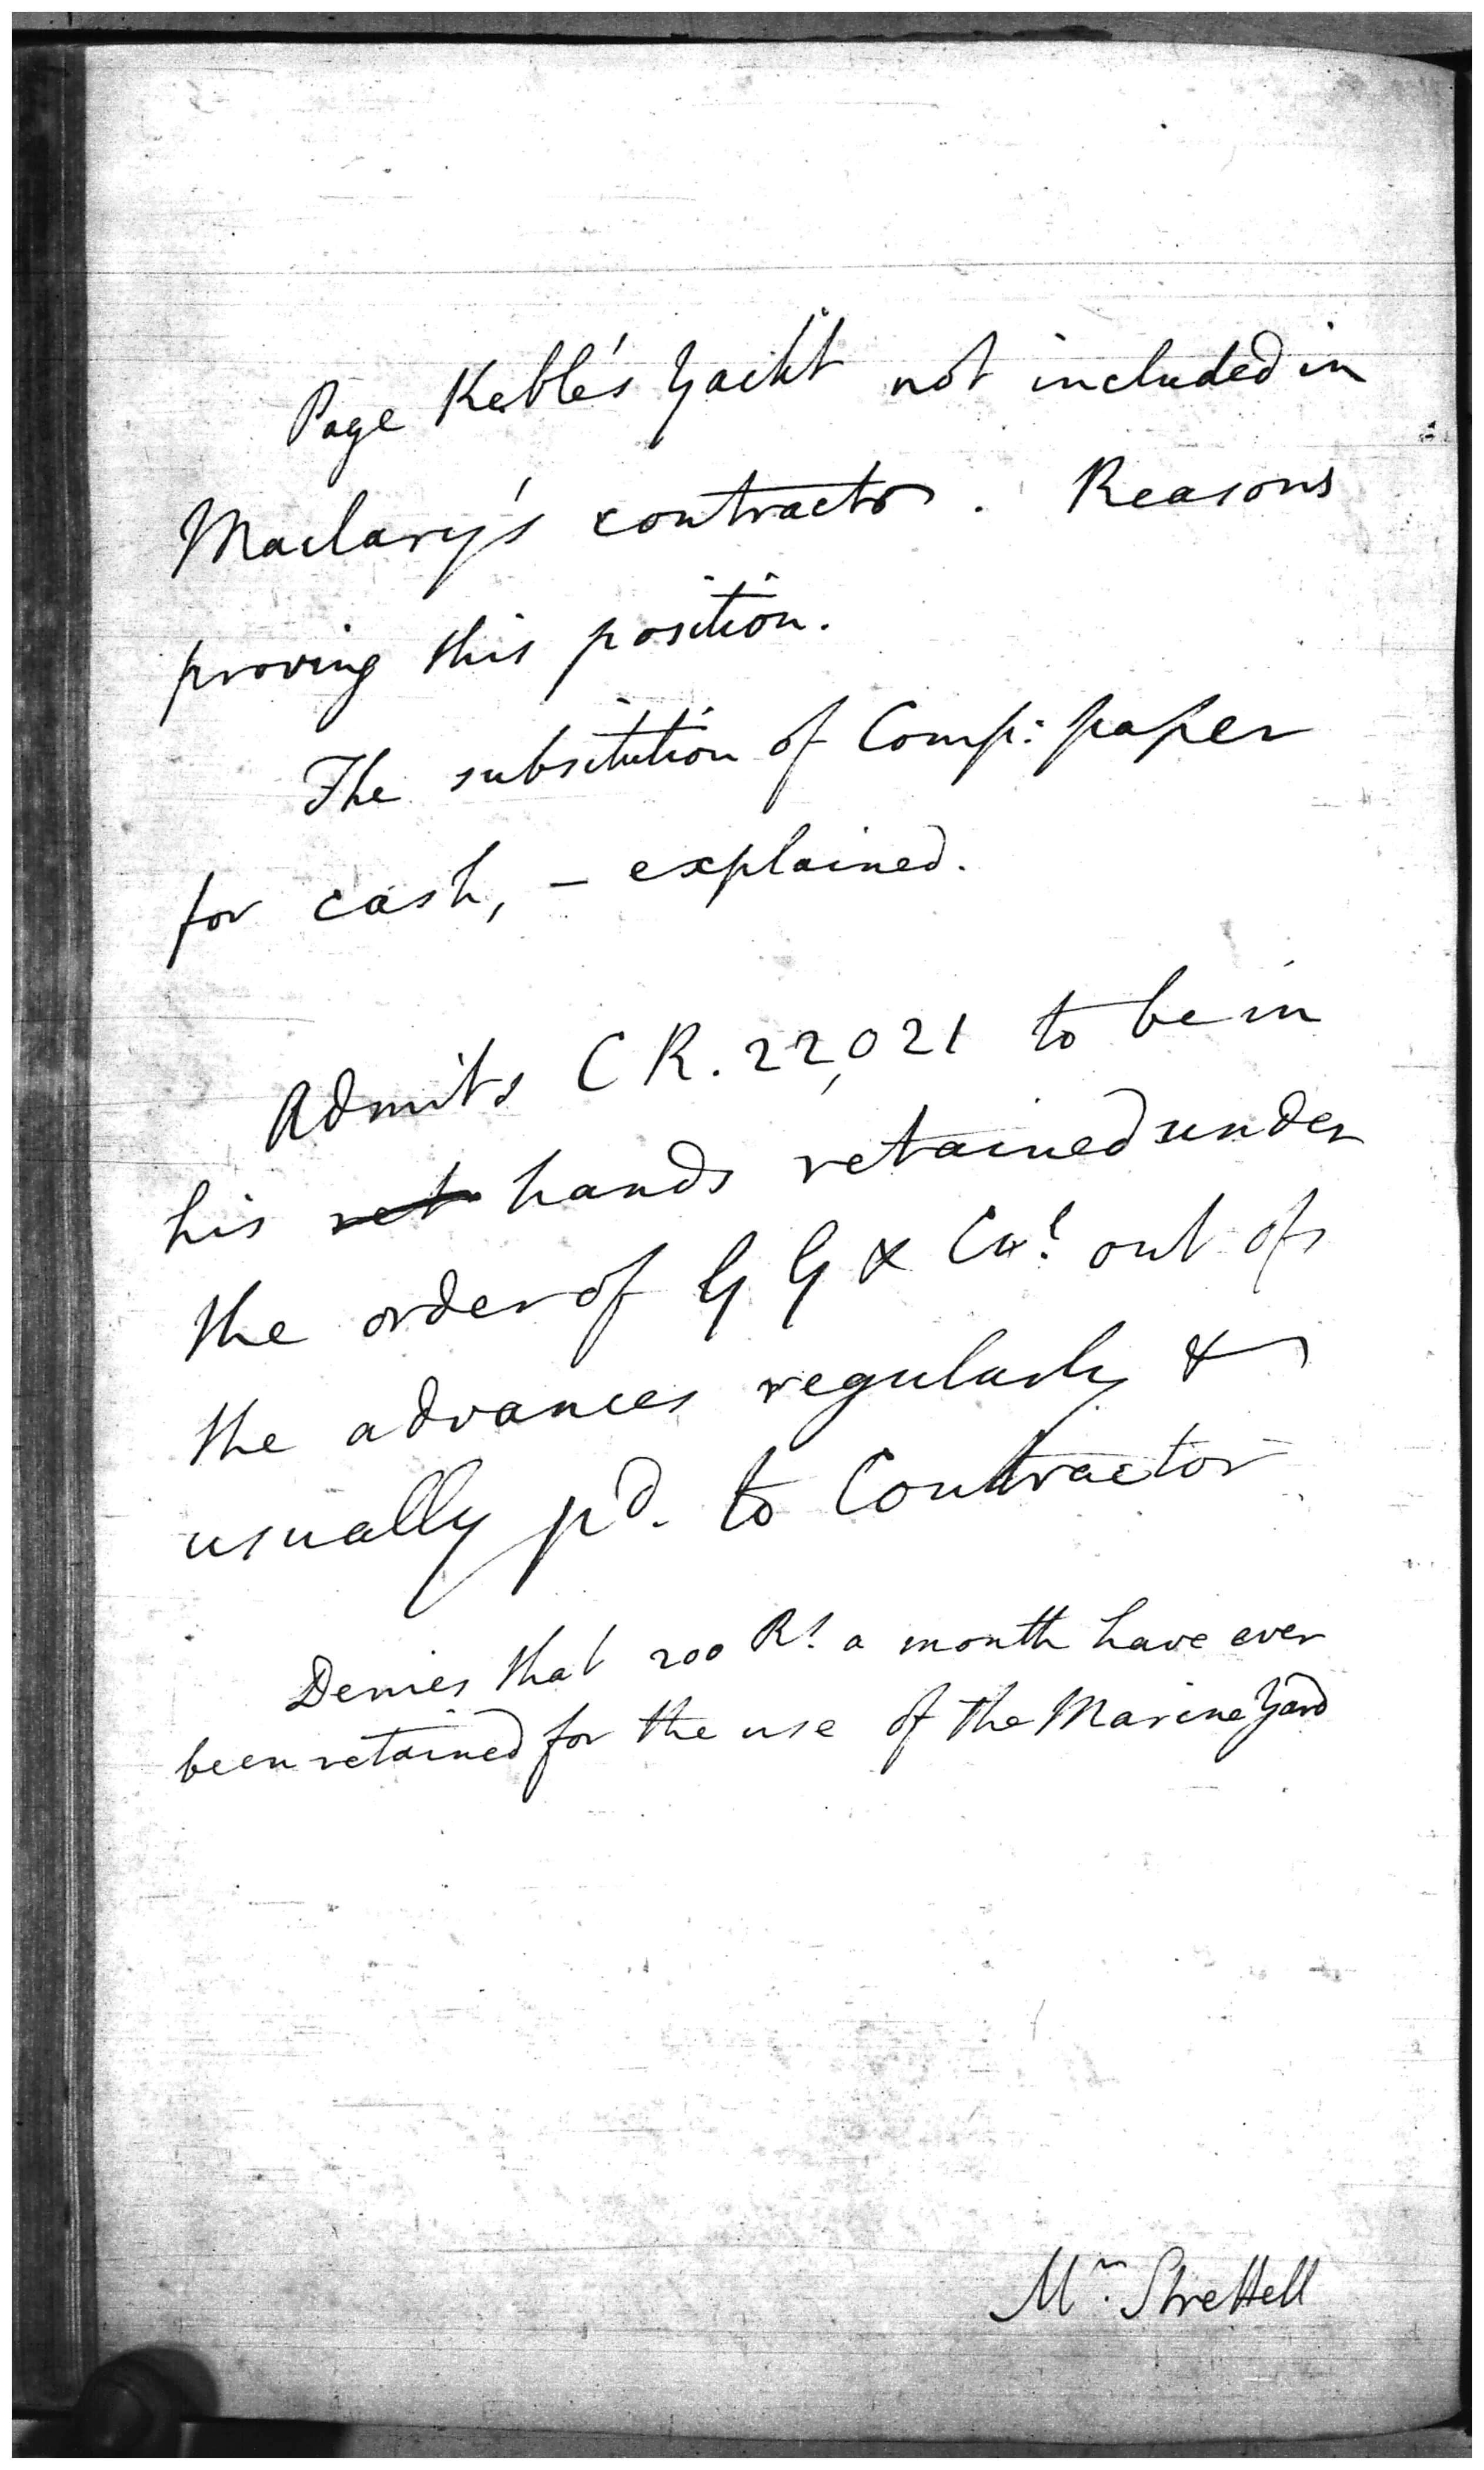 Page Keble's Yacht not included in
Maclary's contracts. Reasons
proving this position.
The subsitution of Comp: paper
for cash, – explained.
Admits C R. 22,021 to be in
his ret hands retained under
the order of G G & Cl out of
the advances regularly &
usually pd. to Contractor
Denies that 200 Rs. a month have ever
been retained for the use of the Marine Yard
Mr. Strettell